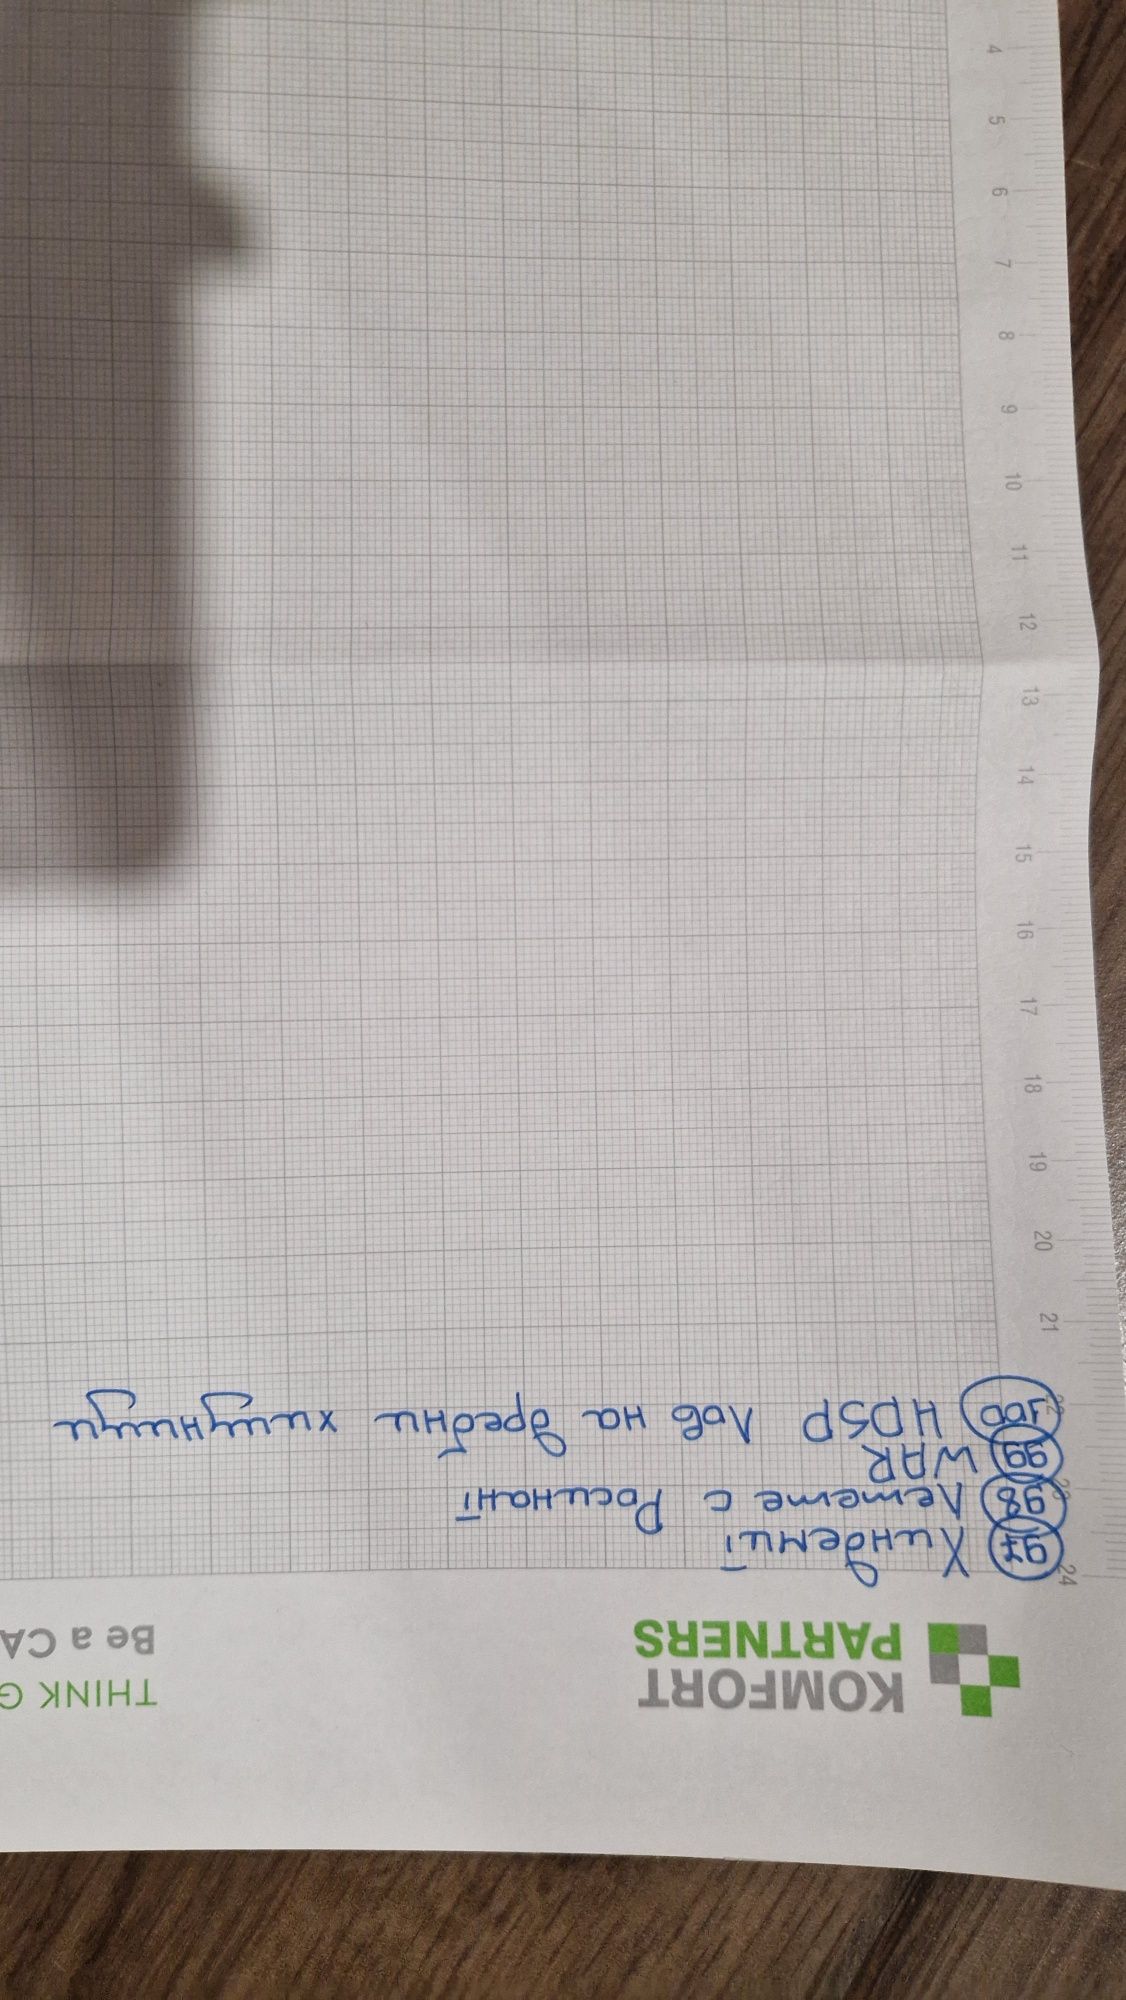 KOMFORT
PARTNERS
THINK G
Be a CA
97 Хиндемит
98 Летете с Росинант
99 WAR
100 HDSP Лов на дребни хищници
24
21
20
19
18
17
16
15
14
13
12
11
10
9
8
7
6
5
4